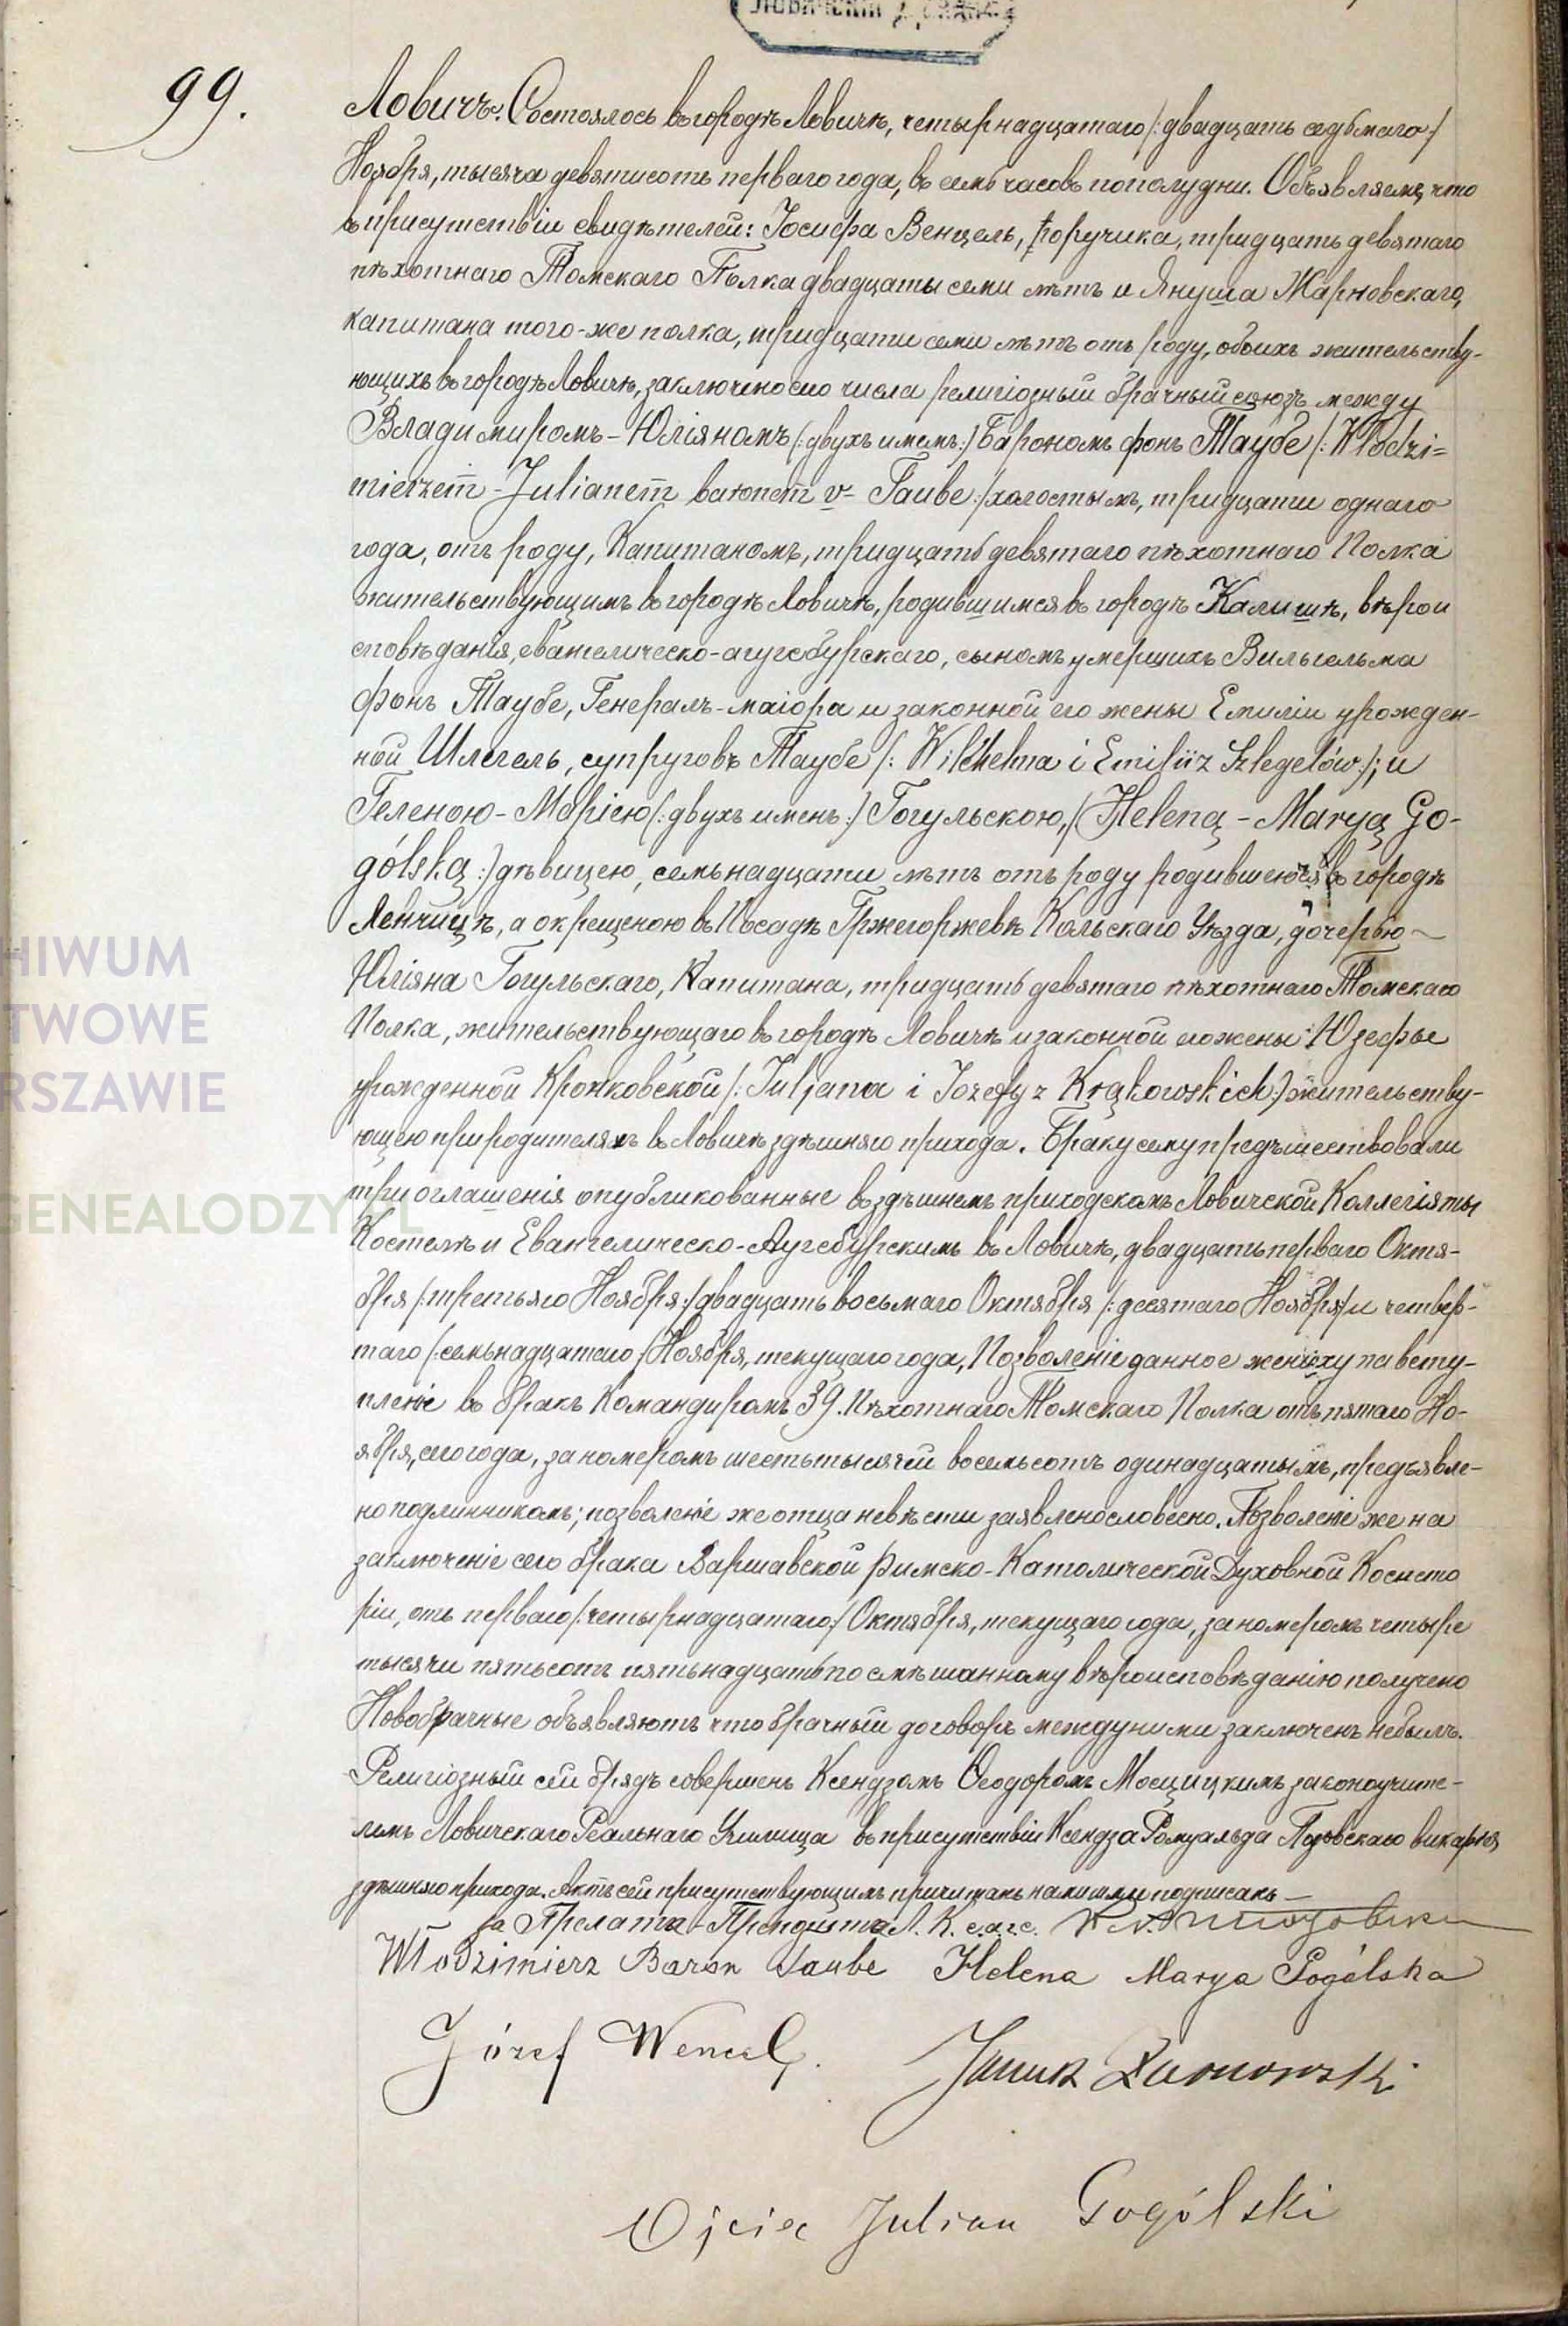 99.
Ловичъ. Состоялось въ городѣ Ловичѣ, четырнадцатаго /: двадцать седьмаго /
Ноября, тысяча девятисотъ перваго года, въ семь часовъ пополудни. Объявляемъ, что
въ присутствіи свидѣтелей: Іосифа Венцель, поручика, тридцать девятаго
пѣхотнаго Томскаго Полка двадцати семи лѣтъ и Януша Жарновскаго,
капитана того-же полка, тридцати семи лѣтъ отъ роду, обоихъ жительству-
ющихъ въ городѣ Ловичѣ, заключено сего числа религіозный брачный союзъ между
Владимиромъ-Юліяномъ /: двухъ именъ :/ Барономъ фонъ Таубе /: Włodzi=
mierzem-Julianem baronem v- Taube :/ холостымъ, тридцати однаго
года, отъ роду, Капитаномъ, тридцать девятаго пѣхотнаго Полка
жительствующимъ въ городѣ Ловичѣ, родившимся въ городѣ Калишѣ, вѣрои
сповѣданія, евангелическо-аугсбургскаго, сыномъ умершихъ Вильгельма
фонъ Таубе, Генералъ-маіора и законной его жены Емиліи урожден-
ной Шлегель, супруговъ Таубе /: Wilchelma i Emilii z Szlegelów :/; и
Геленою-Маріею /: двухъ именъ :/ Гогульскою, /: Heleną - Maryą Go-
gólską :/ дѣвицею, семьнадцати лѣтъ отъ роду родившеюся въ городѣ
Ленчицѣ, а окрещеною въ Посадѣ Гржегоржевѣ Кольскаго Уѣзда, дочерью
Юліяна Гогульскаго, Капитана, тридцать девятаго пѣхотнаго Томскаго
Полка, жительствующаго въ городѣ Ловичѣ и законной его жены Юзефы
урожденной Кронковской /: Juljana i Józefy z Krąkowskich :/ жительству-
ющею при родителяхъ въ Ловичѣ здѣшняго прихода. Браку сему предшествовали
три оглашенія опубликованные въ здѣшнемъ приходскомъ Ловичской Коллегіяты
Костелѣ и Евангелическо-Аугсбургскимъ въ Ловичѣ, двадцать перваго Октя-
бря /: третьяго Ноября :/ двадцать восьмаго Октября /: десятаго Ноября :/ и четвер-
таго /: семьнадцатаго :/ Ноября, текущаго года, Позволеніе данное жениху на всту-
пленіе въ бракъ Командиромъ 39. Пѣхотнаго Томскаго Полка отъ пятаго Но-
ября, сего года, за номеромъ шесть тысячей восемьсотъ одинадцатымъ, предъявле-
но подлинникомъ; позволеніе же отца невѣсти заявлено словесно. Позволеніе же на
заключеніе сего брака Варшавской Римско-Католической Духовной Консисто
ріи, отъ перваго /: четырнадцатаго :/ Октября, текущаго года, за номеромъ четыре
тысячи пятьсотъ пятьнадцать по смѣшанному вѣроисповѣданію получено
Новобрачные объявляютъ что брачный договоръ между ними заключенъ не былъ.
Религіозный сей обрядъ совершенъ Ксендзомъ Ѳеодоромъ Мосцицкимъ законоучите-
лемъ Ловичскаго Реальнаго Училища въ присутствіи Ксендза Ромуальда викарія
здѣшняго прихода. Актъ сей присутствующимъ причитанъ нами и ими подписанъ —
за Прелата - Л. К. с.а.г.с.
Włodzimierz Baron Taube Helena Marya Gogólska
Józef Wencel. Janusz Żarnowski
Ojciec Julian Gogólski
HIWUM
TWOWE
RSZAWIE
GENEALODZY.PL